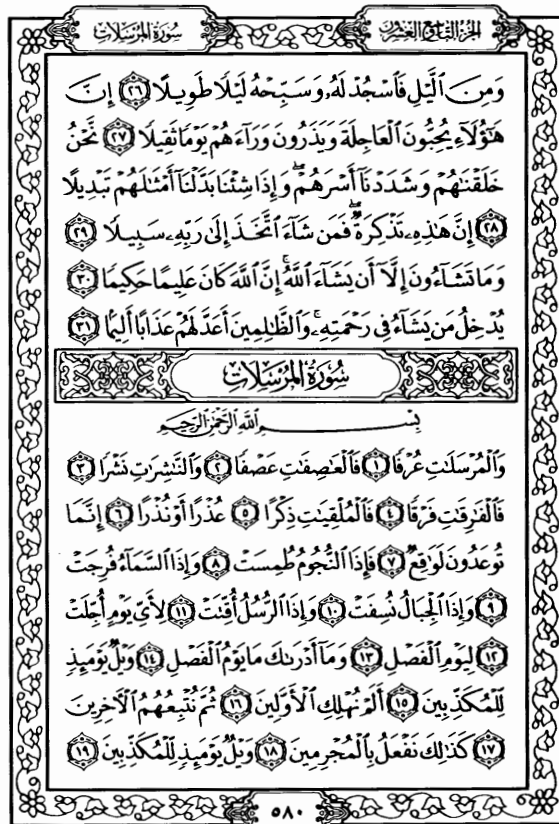 سُورَةُ المُرْسَلَات
الجُزْءُ التَّاسِعُ وَالعِشْرُون
وَمِنَ ٱلَّيْلِ فَٱسْجُدْ لَهُۥ وَسَبِّحْهُ لَيْلًا طَوِيلًا ۝٢٦ إِنَّ
هَٰٓؤُلَآءِ يُحِبُّونَ ٱلْعَاجِلَةَ وَيَذَرُونَ وَرَآءَهُمْ يَوْمًا ثَقِيلًا ۝٢٧ نَّحْنُ
خَلَقْنَٰهُمْ وَشَدَدْنَآ أَسْرَهُمْ ۖ وَإِذَا شِئْنَا بَدَّلْنَآ أَمْثَٰلَهُمْ تَبْدِيلًا
۝٢٨ إِنَّ هَٰذِهِۦ تَذْكِرَةٌ ۖ فَمَن شَآءَ ٱتَّخَذَ إِلَىٰ رَبِّهِۦ سَبِيلًا ۝٢٩
وَمَا تَشَآءُونَ إِلَّآ أَن يَشَآءَ ٱللَّهُ ۚ إِنَّ ٱللَّهَ كَانَ عَلِيمًا حَكِيمًا ۝٣٠
يُدْخِلُ مَن يَشَآءُ فِى رَحْمَتِهِۦ ۚ وَٱلظَّٰلِمِينَ أَعَدَّ لَهُمْ عَذَابًا أَلِيمًۢا ۝٣١
سُورَةُ المُرْسَلَاتِ
بِسْمِ ٱللَّهِ ٱلرَّحْمَٰنِ ٱلرَّحِيمِ
وَٱلْمُرْسَلَٰتِ عُرْفًا ۝١ فَٱلْعَٰصِفَٰتِ عَصْفًا ۝٢ وَٱلنَّٰشِرَٰتِ نَشْرًا ۝٣
فَٱلْفَٰرِقَٰتِ فَرْقًا ۝٤ فَٱلْمُلْقِيَٰتِ ذِكْرًا ۝٥ عُذْرًا أَوْ نُذْرًا ۝٦ إِنَّمَا
تُوعَدُونَ لَوَٰقِعٌ ۝٧ فَإِذَا ٱلنُّجُومُ طُمِسَتْ ۝٨ وَإِذَا ٱلسَّمَآءُ فُرِجَتْ
۝٩ وَإِذَا ٱلْجِبَالُ نُسِفَتْ ۝١٠ وَإِذَا ٱلرُّسُلُ أُقِّتَتْ ۝١١ لِأَىِّ يَوْمٍ أُجِّلَتْ
۝١٢ لِيَوْمِ ٱلْفَصْلِ ۝١٣ وَمَآ أَدْرَىٰكَ مَا يَوْمُ ٱلْفَصْلِ ۝١٤ وَيْلٌ يَوْمَئِذٍ
لِّلْمُكَذِّبِينَ ۝١٥ أَلَمْ نُهْلِكِ ٱلْأَوَّلِينَ ۝١٦ ثُمَّ نُتْبِعُهُمُ ٱلْءَاخِرِينَ
۝١٧ كَذَٰلِكَ نَفْعَلُ بِٱلْمُجْرِمِينَ ۝١٨ وَيْلٌ يَوْمَئِذٍ لِّلْمُكَذِّبِينَ ۝١٩
٥٨٠